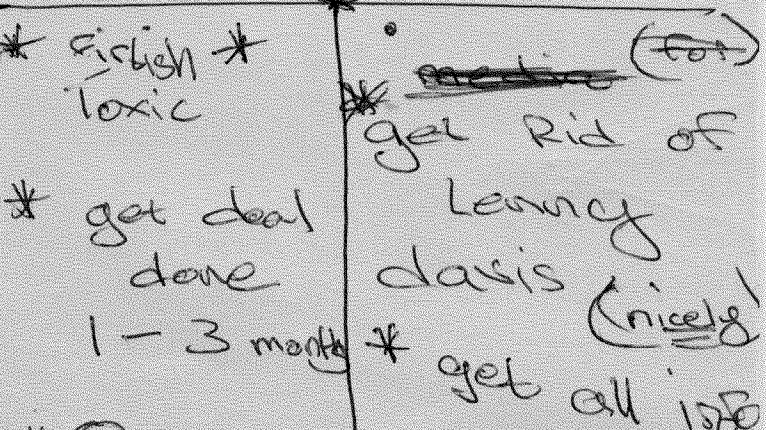 * Firlish *
Toxic
* get deal
done
1 - 3 months
(for)
* get Rid of
Lenny
davis
(nicely)
* get all info